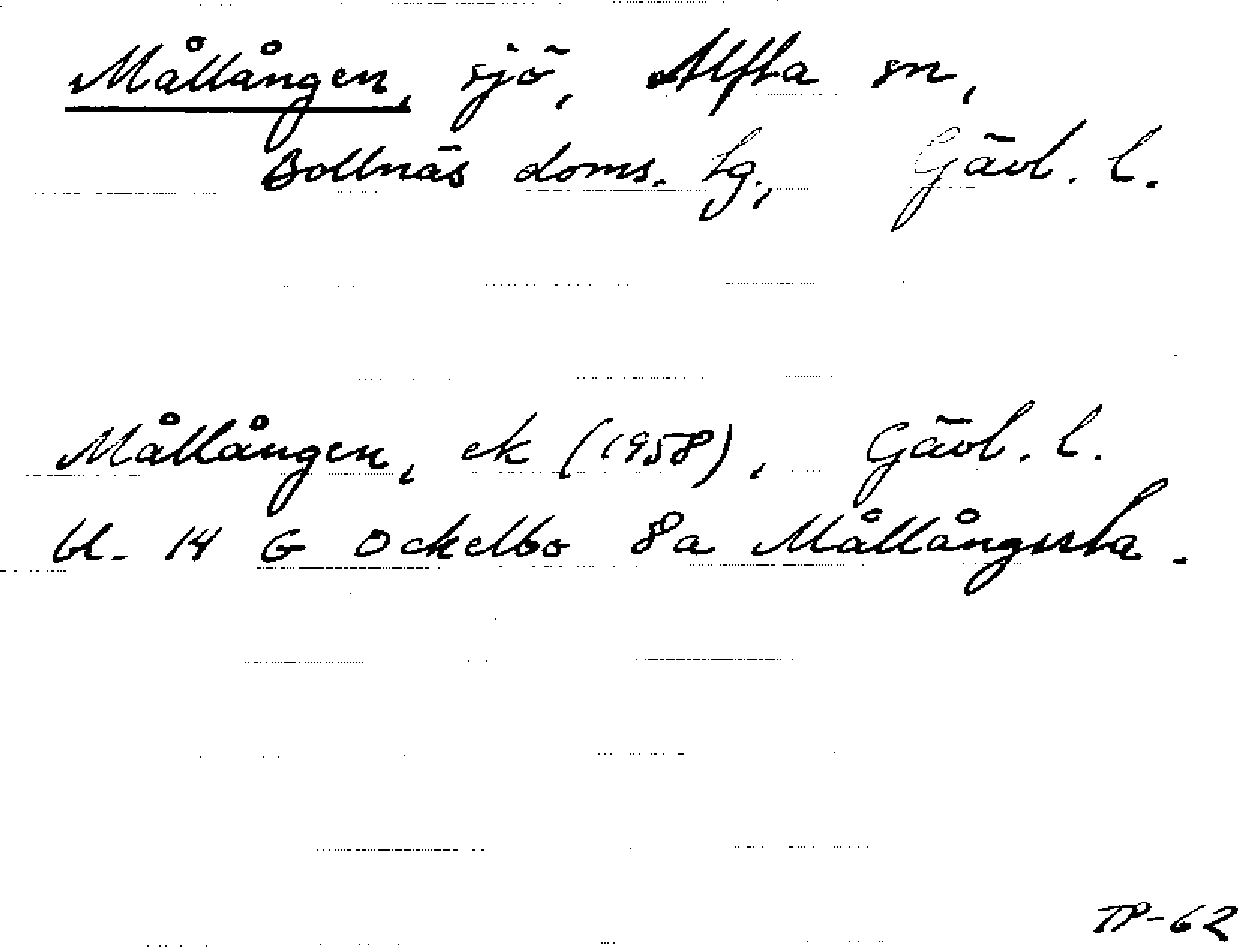 Mållången, sjö, Alfta sn,
Bollnäs doms. hg., Gävl. l.
Mållången, ek (1958), Gävl. l.
bl. 14 G Ockelbo 8a Mållångsta.
TP-62